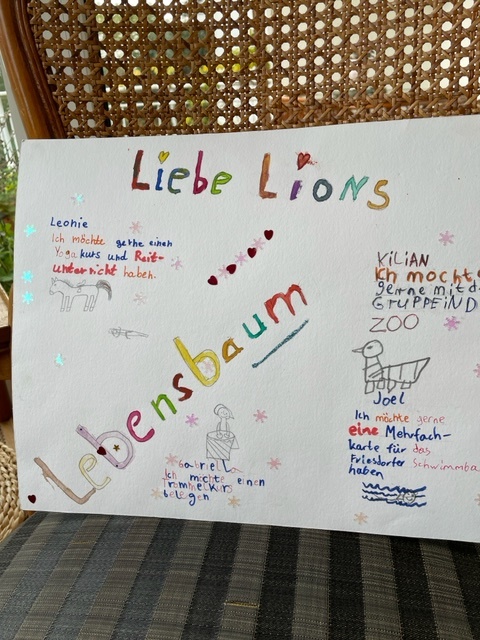 Liebe Lions
Leonie
Ich möchte gerne einen
Yogakurs und Reit-
unterricht haben.
KILIAN
Ich möchte
gerne mit d
GRUPPE IN D
ZOO
Lebensbaum
Joel
Ich möchte gerne
eine Mehrfach-
karte für das
Friesdorfer Schwimmba
haben
Gabriella
Ich möchte einen
Trommelkurs
belegen